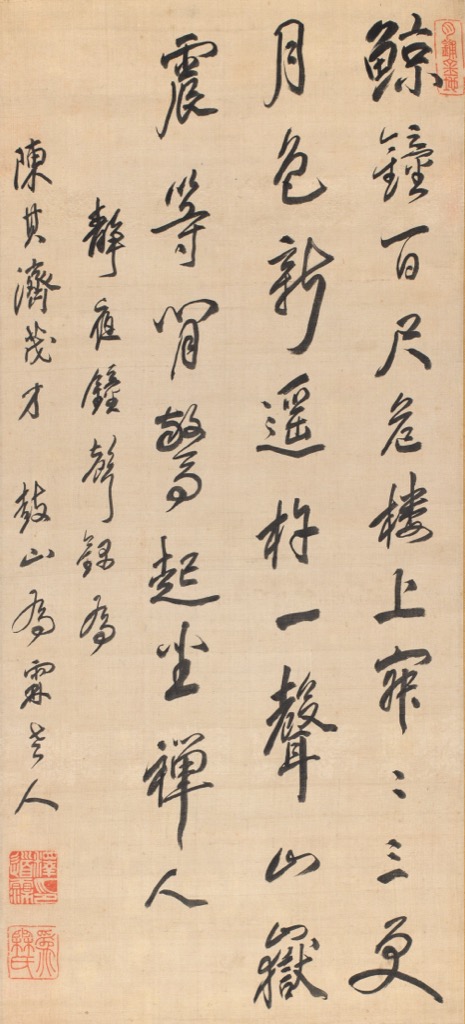 鯨鐘百尺危樓上寂〻三更
月色新遥杵一聲山嶽
震等閒驚起坐禪人
静夜鐘聲録為
陳其濟茂才 鼓山為霖老人